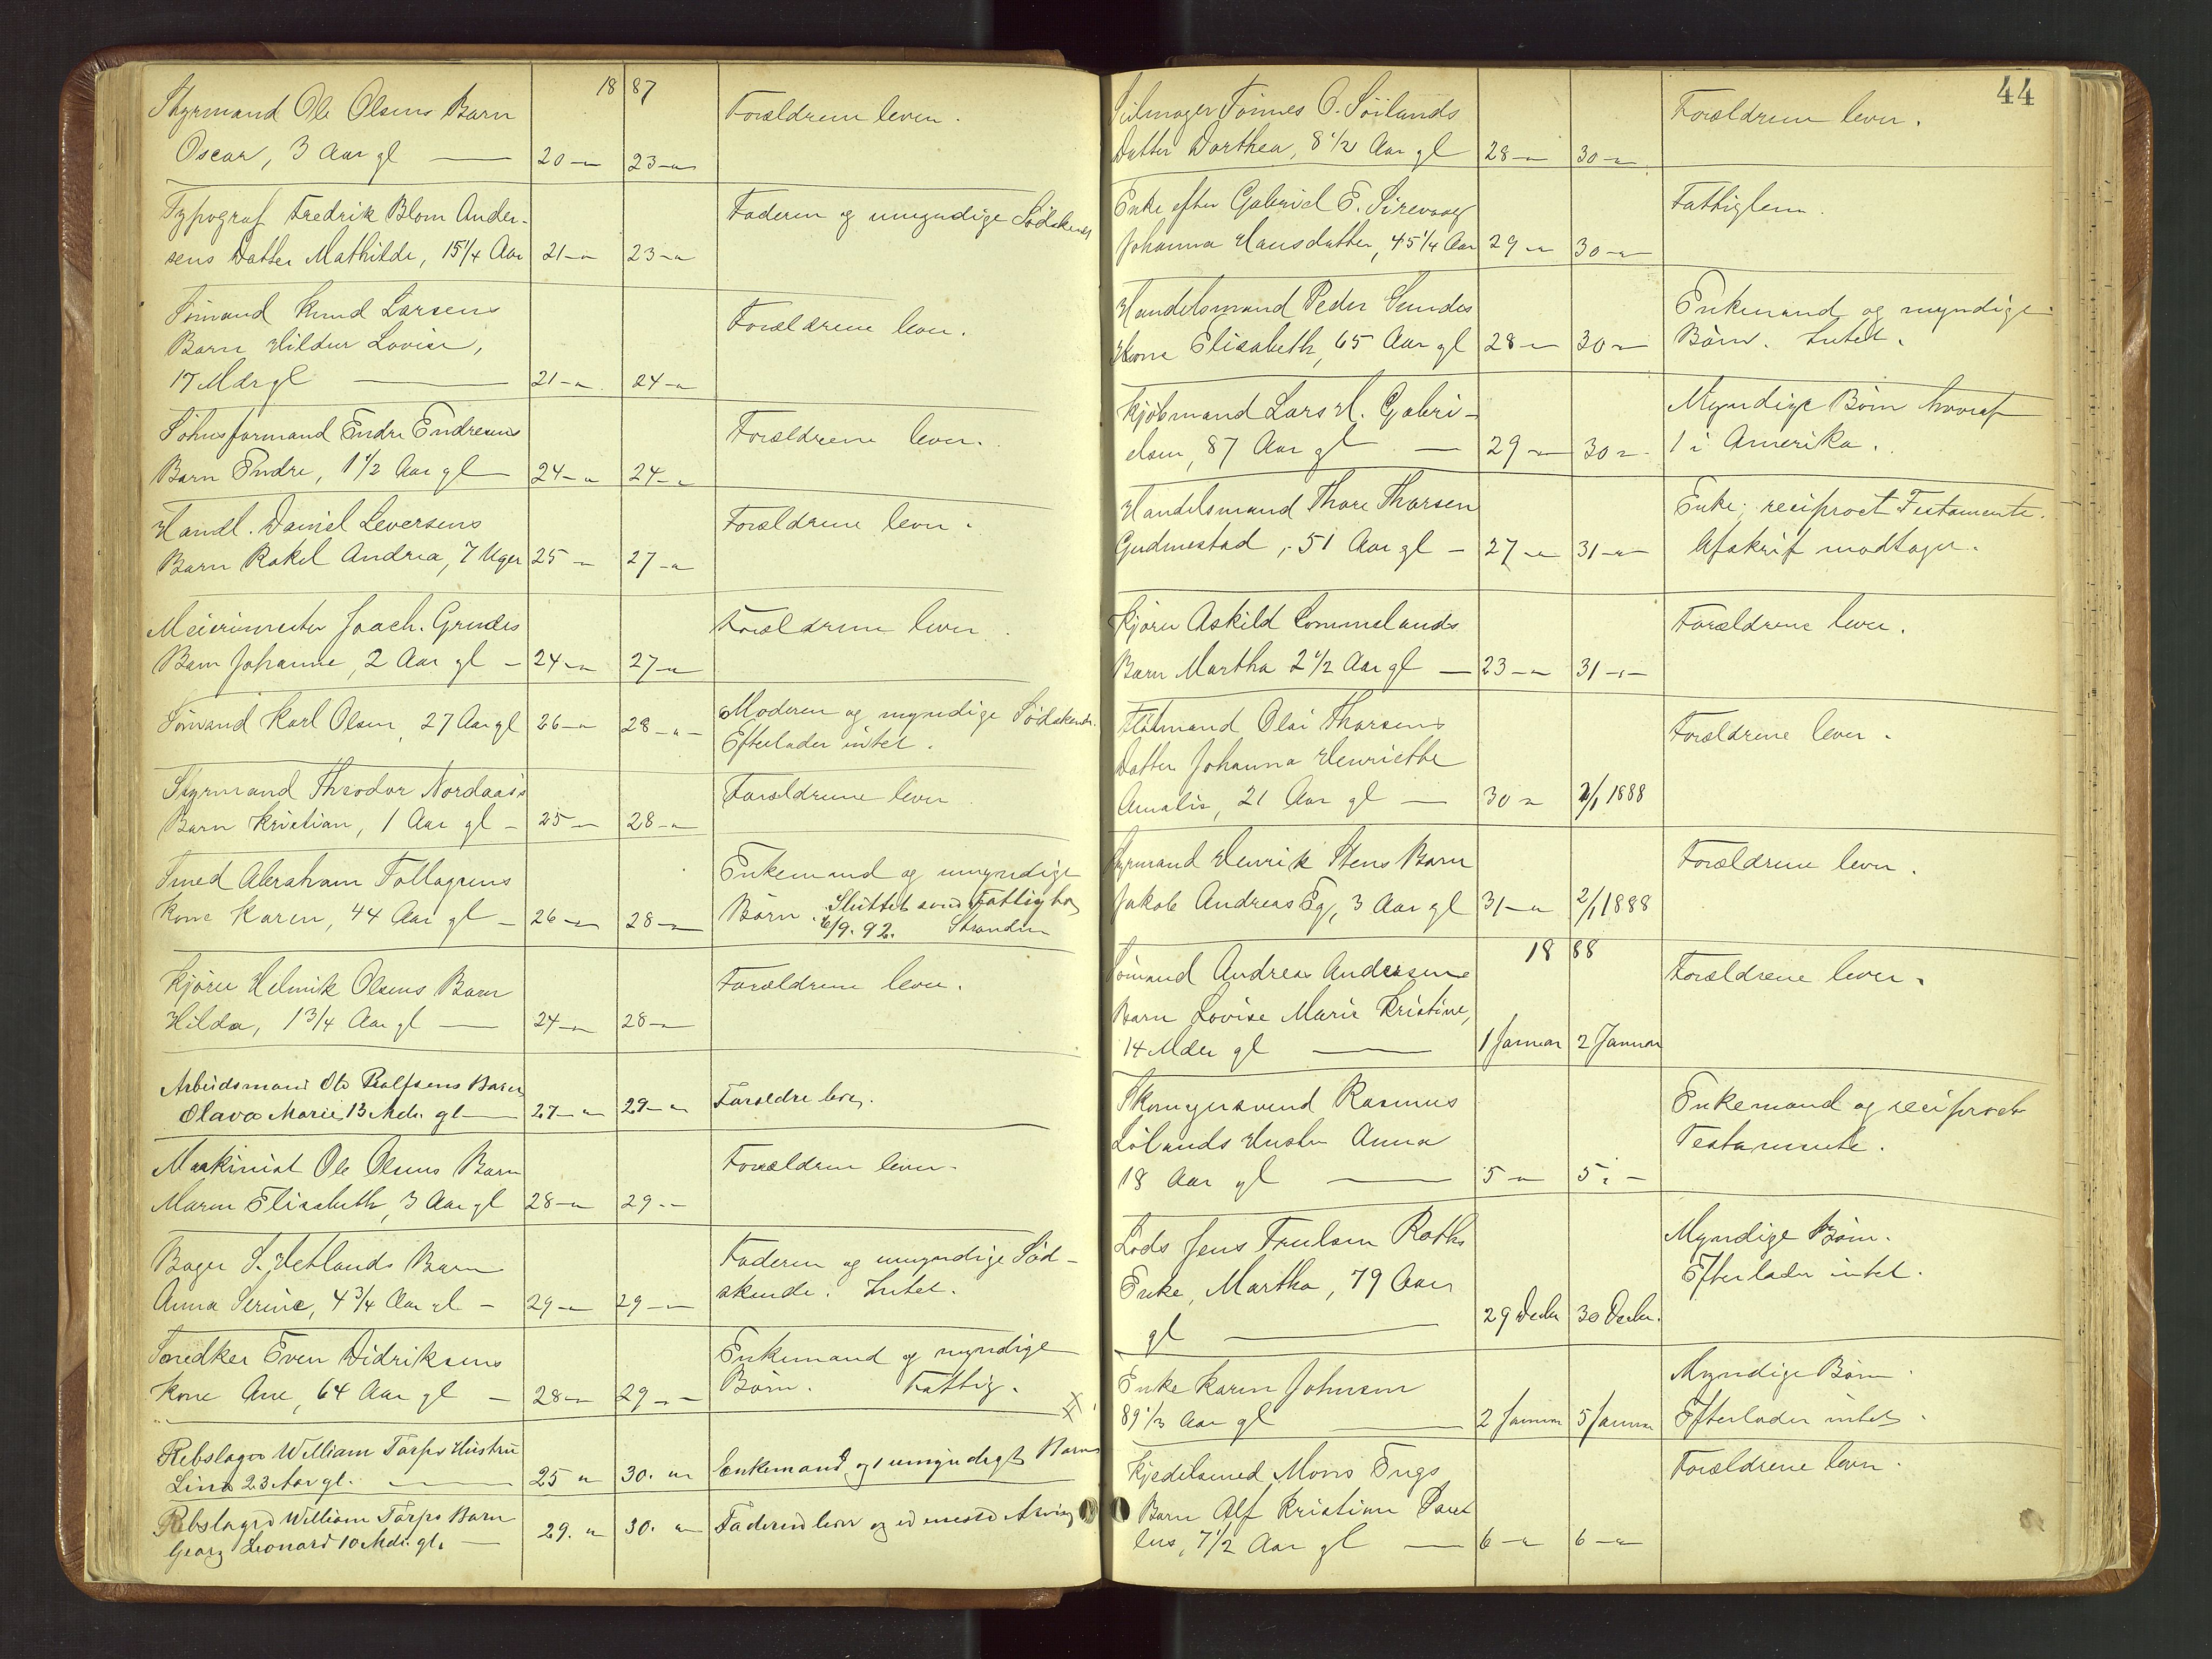 18 87
Styrmand Ole Olsens Barn
Oscar, 3 Aar gl — 20 — " 23 — " Forældrene lever.
Typograf Fredrik Blom Ander-
sens Datter Mathilde, 15 1/4 Aar 21 — " 23 — " Faderen og umyndige Södskende
Sömand Knud Larsens
Barn Hildur Lovise,
17 Mdr gl — 21 — " 24 — " Forældrene lever.
formand Endre Endresens
Barn Endre, 1 1/2 Aar gl — 24 — " 24 — " Forældrene lever.
Handl. Daniel Seversens
Barn Rakel Andrea, 7 Uger 25 — " 27 — " Forældrene lever.
Meierimester Joach. Grudes
Barn Johanne, 2 Aar gl — 24 — " 27 — " Forældrene lever.
Sömand Karl Olsen, 27 Aar gl 26 — " 28 — " — Moderen og myndige Södskende.
Efterlader intet.
Styrmand Theodor Nordaas's
Barn Kristian, 1 Aar gl — 25 — " 28 — " Forældrene lever
Smed Abraham Tollagsens
Kone Karen, 44 Aar gl — 26 — " 28 — " Enkemand og umyndige
Börn. Sluttet som Fattigbo
6/9. 92.
Kjörer Helmik Olsens Barn
Hilda, 1 3/4 Aar gl — 24 — " 28 — " Forældrene lever.
Arbeidsmand Ole Rolfsens Barn
Olava Marie, 13 Mdr. gl — 27 — " 29 — " Forældre lever.
Maskinist Ole Olsens Barn
Maren Elisabeth, 3 Aar gl 28 — " 29. — Forældrene lever.
Bager S. Hetlands Barn
Anna Serine, 4 3/4 Aar gl — 29 — " 29 — " Faderen og umyndige Söd-
skende. Intet.
Snedker Even Didriksens
Kone Ane, 64 Aar gl — 28 — " 29 — Enkemand og myndige
Börn. Fattig.
Rebslager William Torps Hustru
Lina 23 Aar gl. — 25 " 30. " Enkemand og 1 umyndigt Barn
Rebslager William Torps Barn
Georg Leonard 10 Mdr. gl. — 29. " 30. " Faderen lever og er eneste Arving
44
Tönnes O. Söilands
Datter Dorthea, 8 1/2 Aar gl 28 — " 30 — " Forældrene lever.
Enke efter Gabriel E. Sirevaag
Johanna Hansdatter, 45 1/4 Aar 29 — " 30 — " Fattiglem.
Handelsmand Peder Sundes
Kone Elisabeth, 65 Aar gl 28 — " 30 — " Enkemand og myndige
Börn. Intet.
Kjöbmand Lars H. Gabri-
elsen, 87 Aar gl — 29 — " 30 — " Myndige Börn hvoraf
1 i Amerika.
Handelsmand Thore Thorsen
Gudmestad, 51 Aar gl — 27 — " 31 — " Enke; reciproct Testamente.
Afskrift modtaget.
Kjörer Askild Lommelands
Barn Martha 2 1/2 Aar gl — 23 — " 31 — " — Forældrene lever.
Olai Thorsens
Datter Johanna Henriethe
Amalie, 21 Aar gl — 30 " 2/1 1888 Forældrene lever.
Styrmand Henrik Stens Barn
Jakob Andreas Eg, 3 Aar gl 31 — " 2/1 1888 Forældrene lever.
18 88
Sömand Andreas Andersens
Barn Lovise Marie Kristine,
14 Mdr gl — 1 Januar 2 Januar Forældrene lever.
Skomagersvend Rasmus
Lölands Hustru Anna
18 Aar gl — 5 — " 5 " — Enkemand og reciproct
Testamente.
Lods Jens Trulsen Roths
Enke, Martha, 79 Aar
gl — 29 Decbr 30 Decbr. Myndige Börn.
Efterlader intet.
Enke Karen Johnsen
89 1/3 Aar gl — 2 Januar 5 Januar Myndige Börn.
Efterlader intet.
Kjedelsmed Mons Engs
Barn Alf Kristian Paul
lus, 7 1/2 Aar gl — 6 — " 6 — " Forældrene lever.